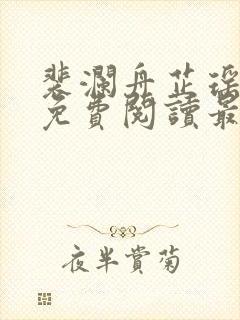 裴瀾舟芷瑶
免費閱讀最
夜半賞菊